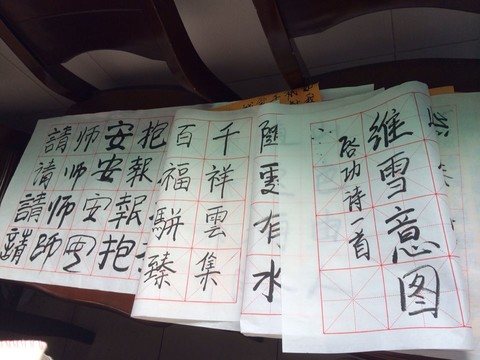 维雪意图
启功诗首
有水
千祥雲集
百福駢臻
抱報報抱
安安安安
师师师師
請请請請